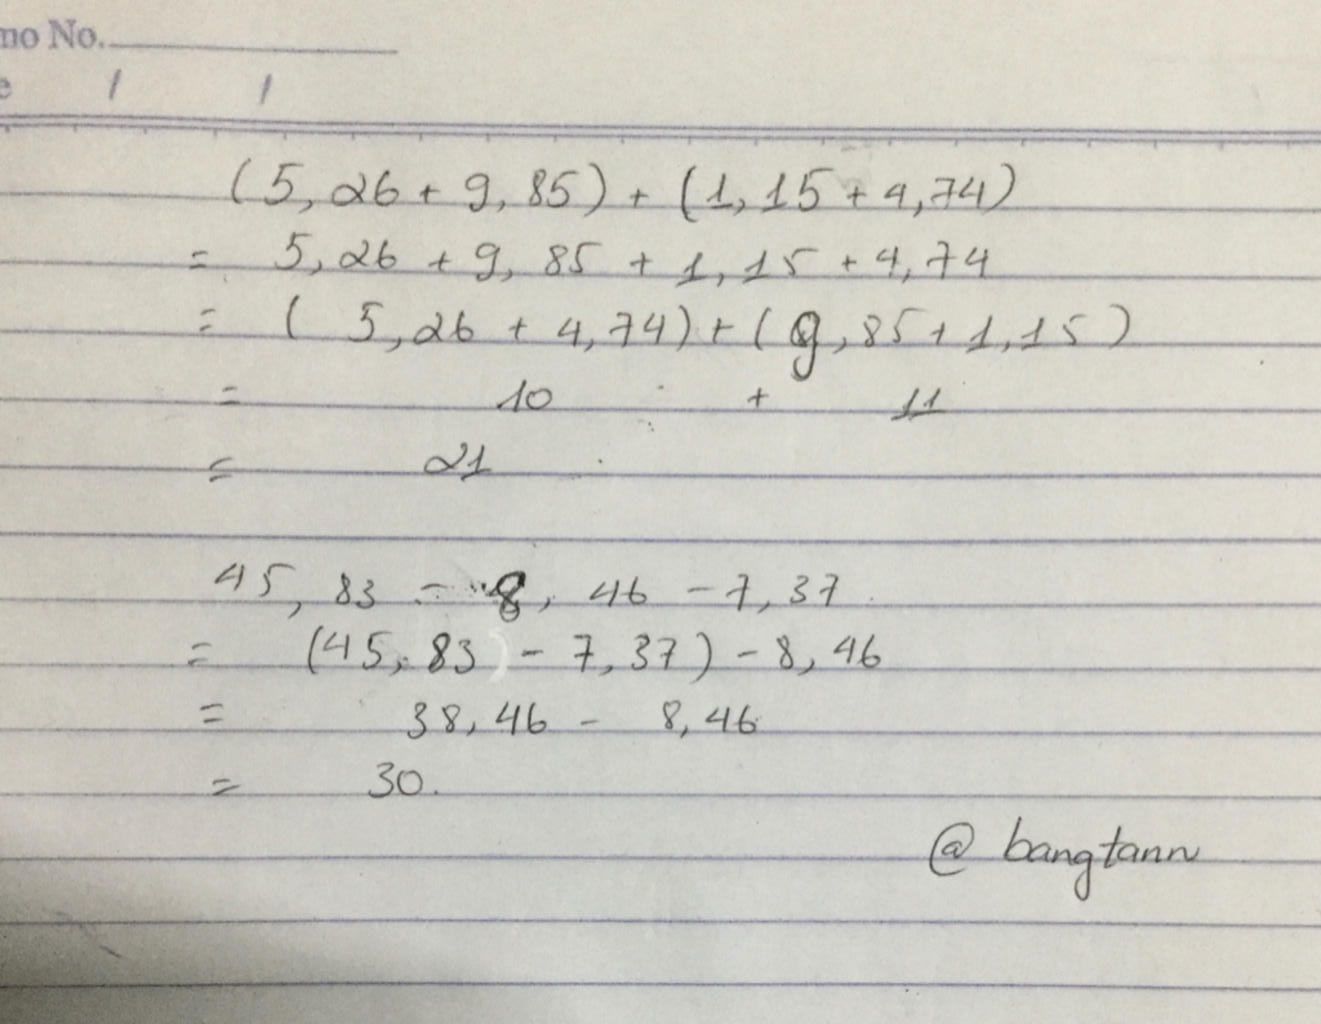 mo No.
e / /
(5,26 + 9,85) + (1,15 + 4,74)
= 5,26 + 9,85 + 1,15 + 4,74
= ( 5,26 + 4,74) + ( 9,85 + 1,15 )
= 10 + 11
= 21
45,83 - 8,46 - 7,37
= (45,83 - 7,37) - 8,46
= 38,46 - 8,46
= 30.
@ bangtann